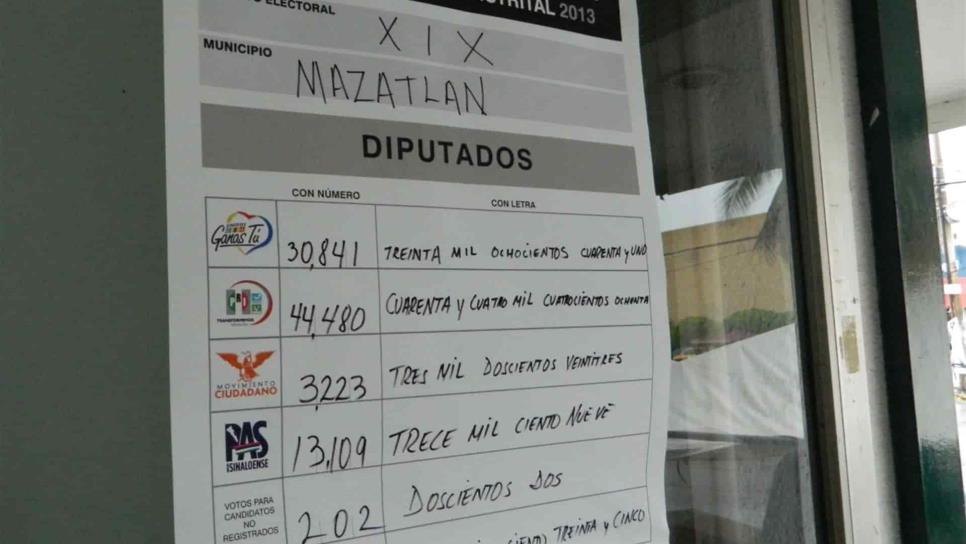 DISTRITAL 2013
ELECTORAL
XIX
MUNICIPIO
MAZATLAN
DIPUTADOS
CON NÚMERO
CON LETRA
Ganas Tú
30,841
TREINTA MIL OCHOCIENTOS CUARENTA y UNO
PRI
TRANSFORMEMOS
44,480
CUARENTA y CUATRO MIL CUATROCIENTOS OCHENTA
MOVIMIENTO
CIUDADANO
3,223
TRES MIL DOSCIENTOS VEINTITRES
PAS
SINALOENSE
13,109
TRECE MIL CIENTO NUEVE
VOTOS PARA
CANDIDATOS
NO
REGISTRADOS
202
DOSCIENTOS DOS
CIENTO TREINTA y CINCO